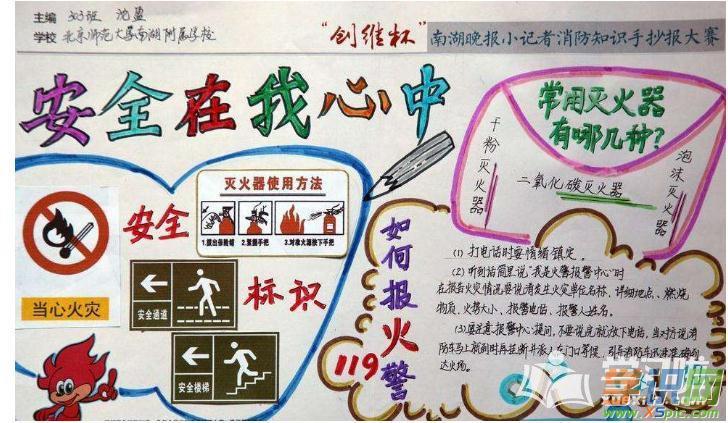 主编 303班 沈盈
学校 北京师范大学南湖附属学校
"创维杯" 南湖晚报小记者消防知识手抄报大赛
安全在我心中
常用灭火器
有哪几种?
干粉灭火器
二氧化碳灭火器
泡沫灭火器
当心火灾
安全
标识
灭火器使用方法
1.拔出保险销 2.紧握手把 3.对准火源按下手把
安全通道
安全楼梯
如何报火警
119
(1) 打电话时要情绪镇定。
(2) 听到话筒里说"我是火警报警中心"时
在报告火灾情况要说清发生火灾单位名称、详细地点、燃烧
物质、火势大小、报警电话、报警人姓名。
(3) 要注意报警中心提问,不要说完就放下电话,当对方说消
防车马上就到时再挂断并派人在门口等候,引导消防车迅速准确到
达火场。
www.XSpic.com